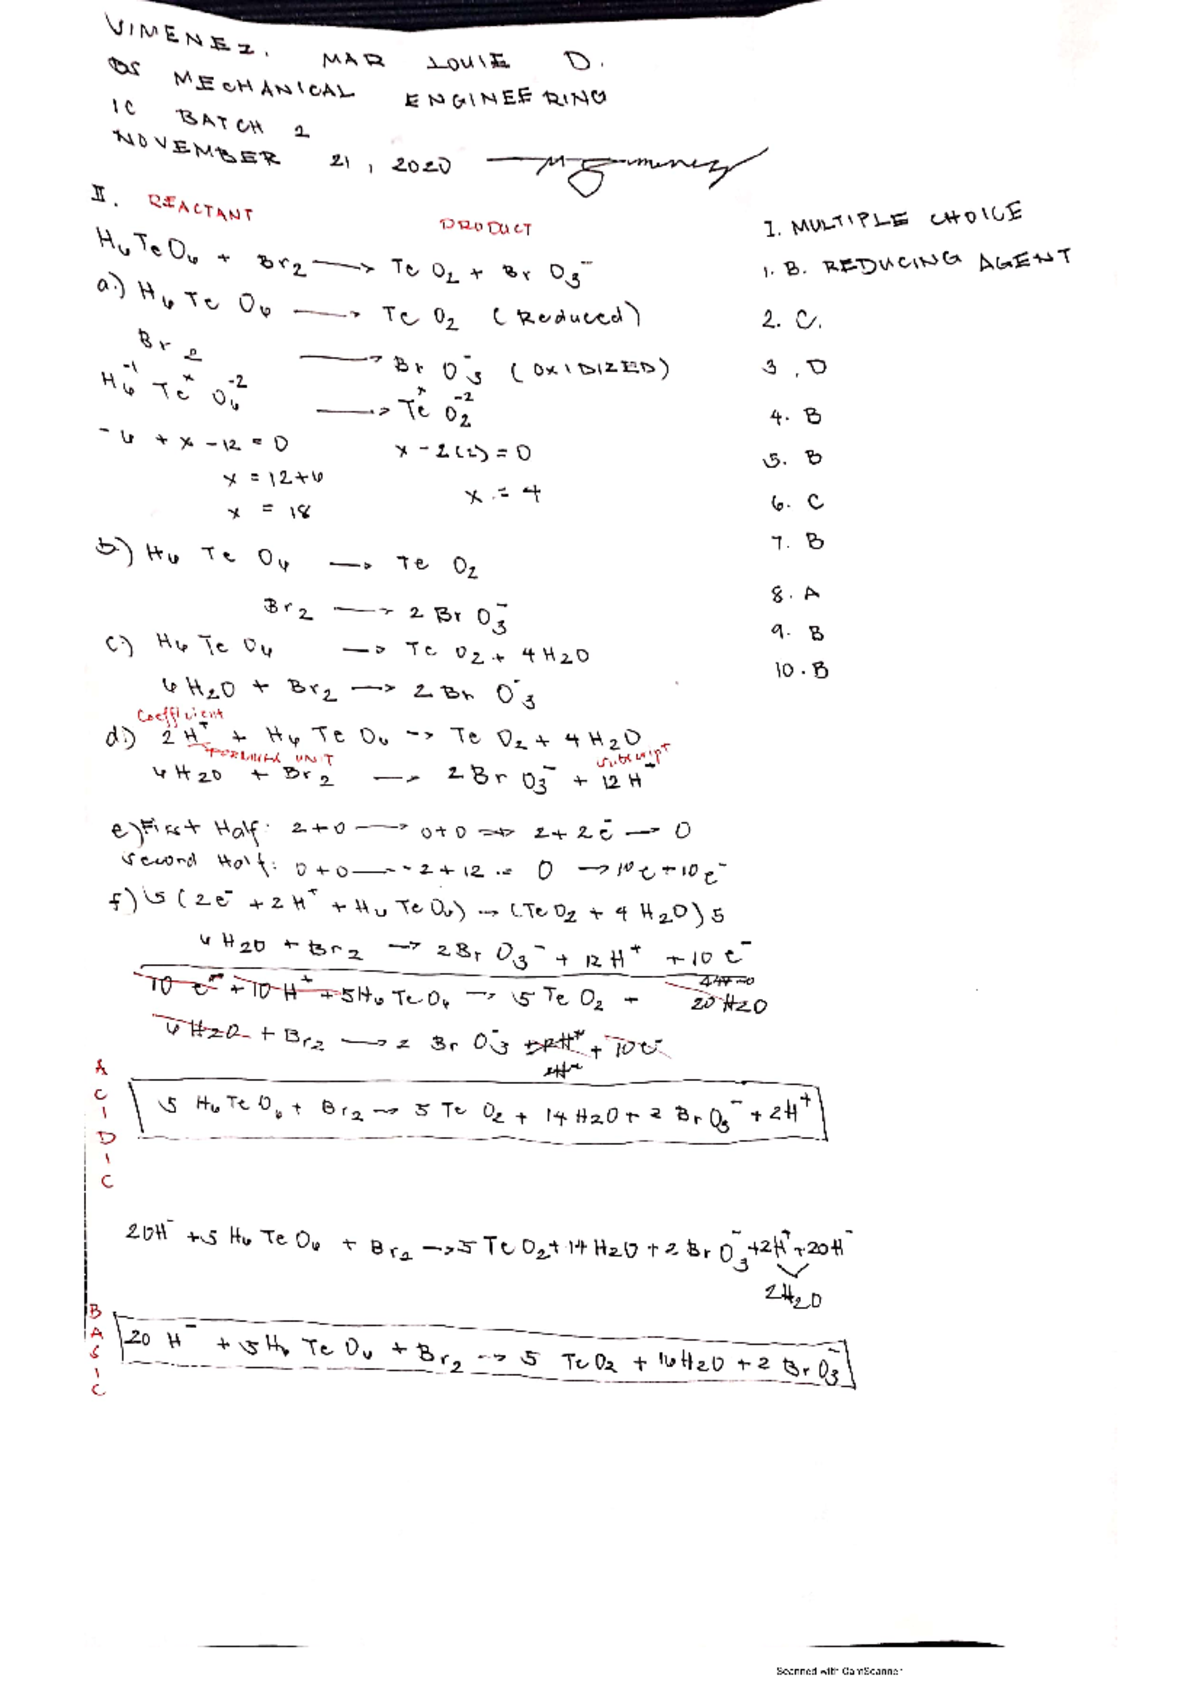 VIMENEZ, MAR LOUIE D.
BS MECHANICAL ENGINEERING
1C BATCH 2
NOVEMBER 21, 2020
II. REACTANT PRODUCT
H6TeO6 + Br2 → TeO2 + BrO3⁻
a.) H6TeO6 → TeO2 (Reduced)
Br2 → BrO3⁻ (OXIDIZED)
H6⁻¹ Teˣ O6⁻² → Teˣ O2⁻²
-6 + x - 12 = 0 x - 2(2) = 0
x = 12+6 x = 4
x = 18
b.) H6TeO6 → TeO2
Br2 → 2BrO3⁻
c.) H6TeO6 → TeO2 + 4H2O
6H2O + Br2 → 2BrO3⁻
Coefficient
d.) 2H⁺ + H6TeO6 → TeO2 + 4H2O
FORMULA UNIT subscript
6H2O + Br2 → 2BrO3⁻ + 12H⁺
e) First Half: 2+0 → 0+0 ⇒ 2+2e⁻ → 0
Second Half: 0+0 → -2+12 = 0 → 10e⁻ + 10e⁻
f) 5(2e⁻ + 2H⁺ + H6TeO6) → (TeO2 + 4H2O)5
6H2O + Br2 → 2BrO3⁻ + 12H⁺ + 10e⁻
10e⁻ + 10H⁺ + 5H6TeO6 → 5TeO2 + 20H2O
6H2O + Br2 → 2BrO3⁻ + 12H⁺ + 10e⁻
ACIDIC
5H6TeO6 + Br2 → 5TeO2 + 14H2O + 2BrO3⁻ + 2H⁺
2OH⁻ + 5H6TeO6 + Br2 → 5TeO2 + 14H2O + 2BrO3⁻ + 2H⁺ + 2OH⁻
2H2O
BASIC
2OH⁻ + 5H6TeO6 + Br2 → 5TeO2 + 16H2O + 2BrO3⁻
I. MULTIPLE CHOICE
1. B. REDUCING AGENT
2. C.
3. D
4. B
5. B
6. C
7. B
8. A
9. B
10. B
Scanned with CamScanner